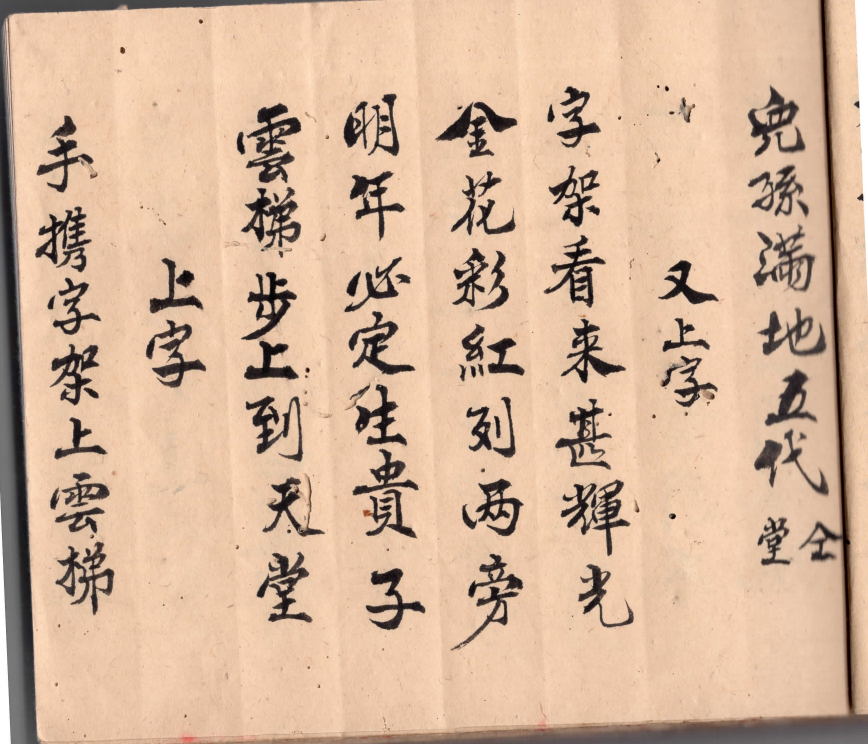 児孫滿地五代仝堂
又上字
字架看来甚輝光
金花彩紅列两旁
明年必定生貴子
雲梯步上到天堂
上字
手携字架上雲梯